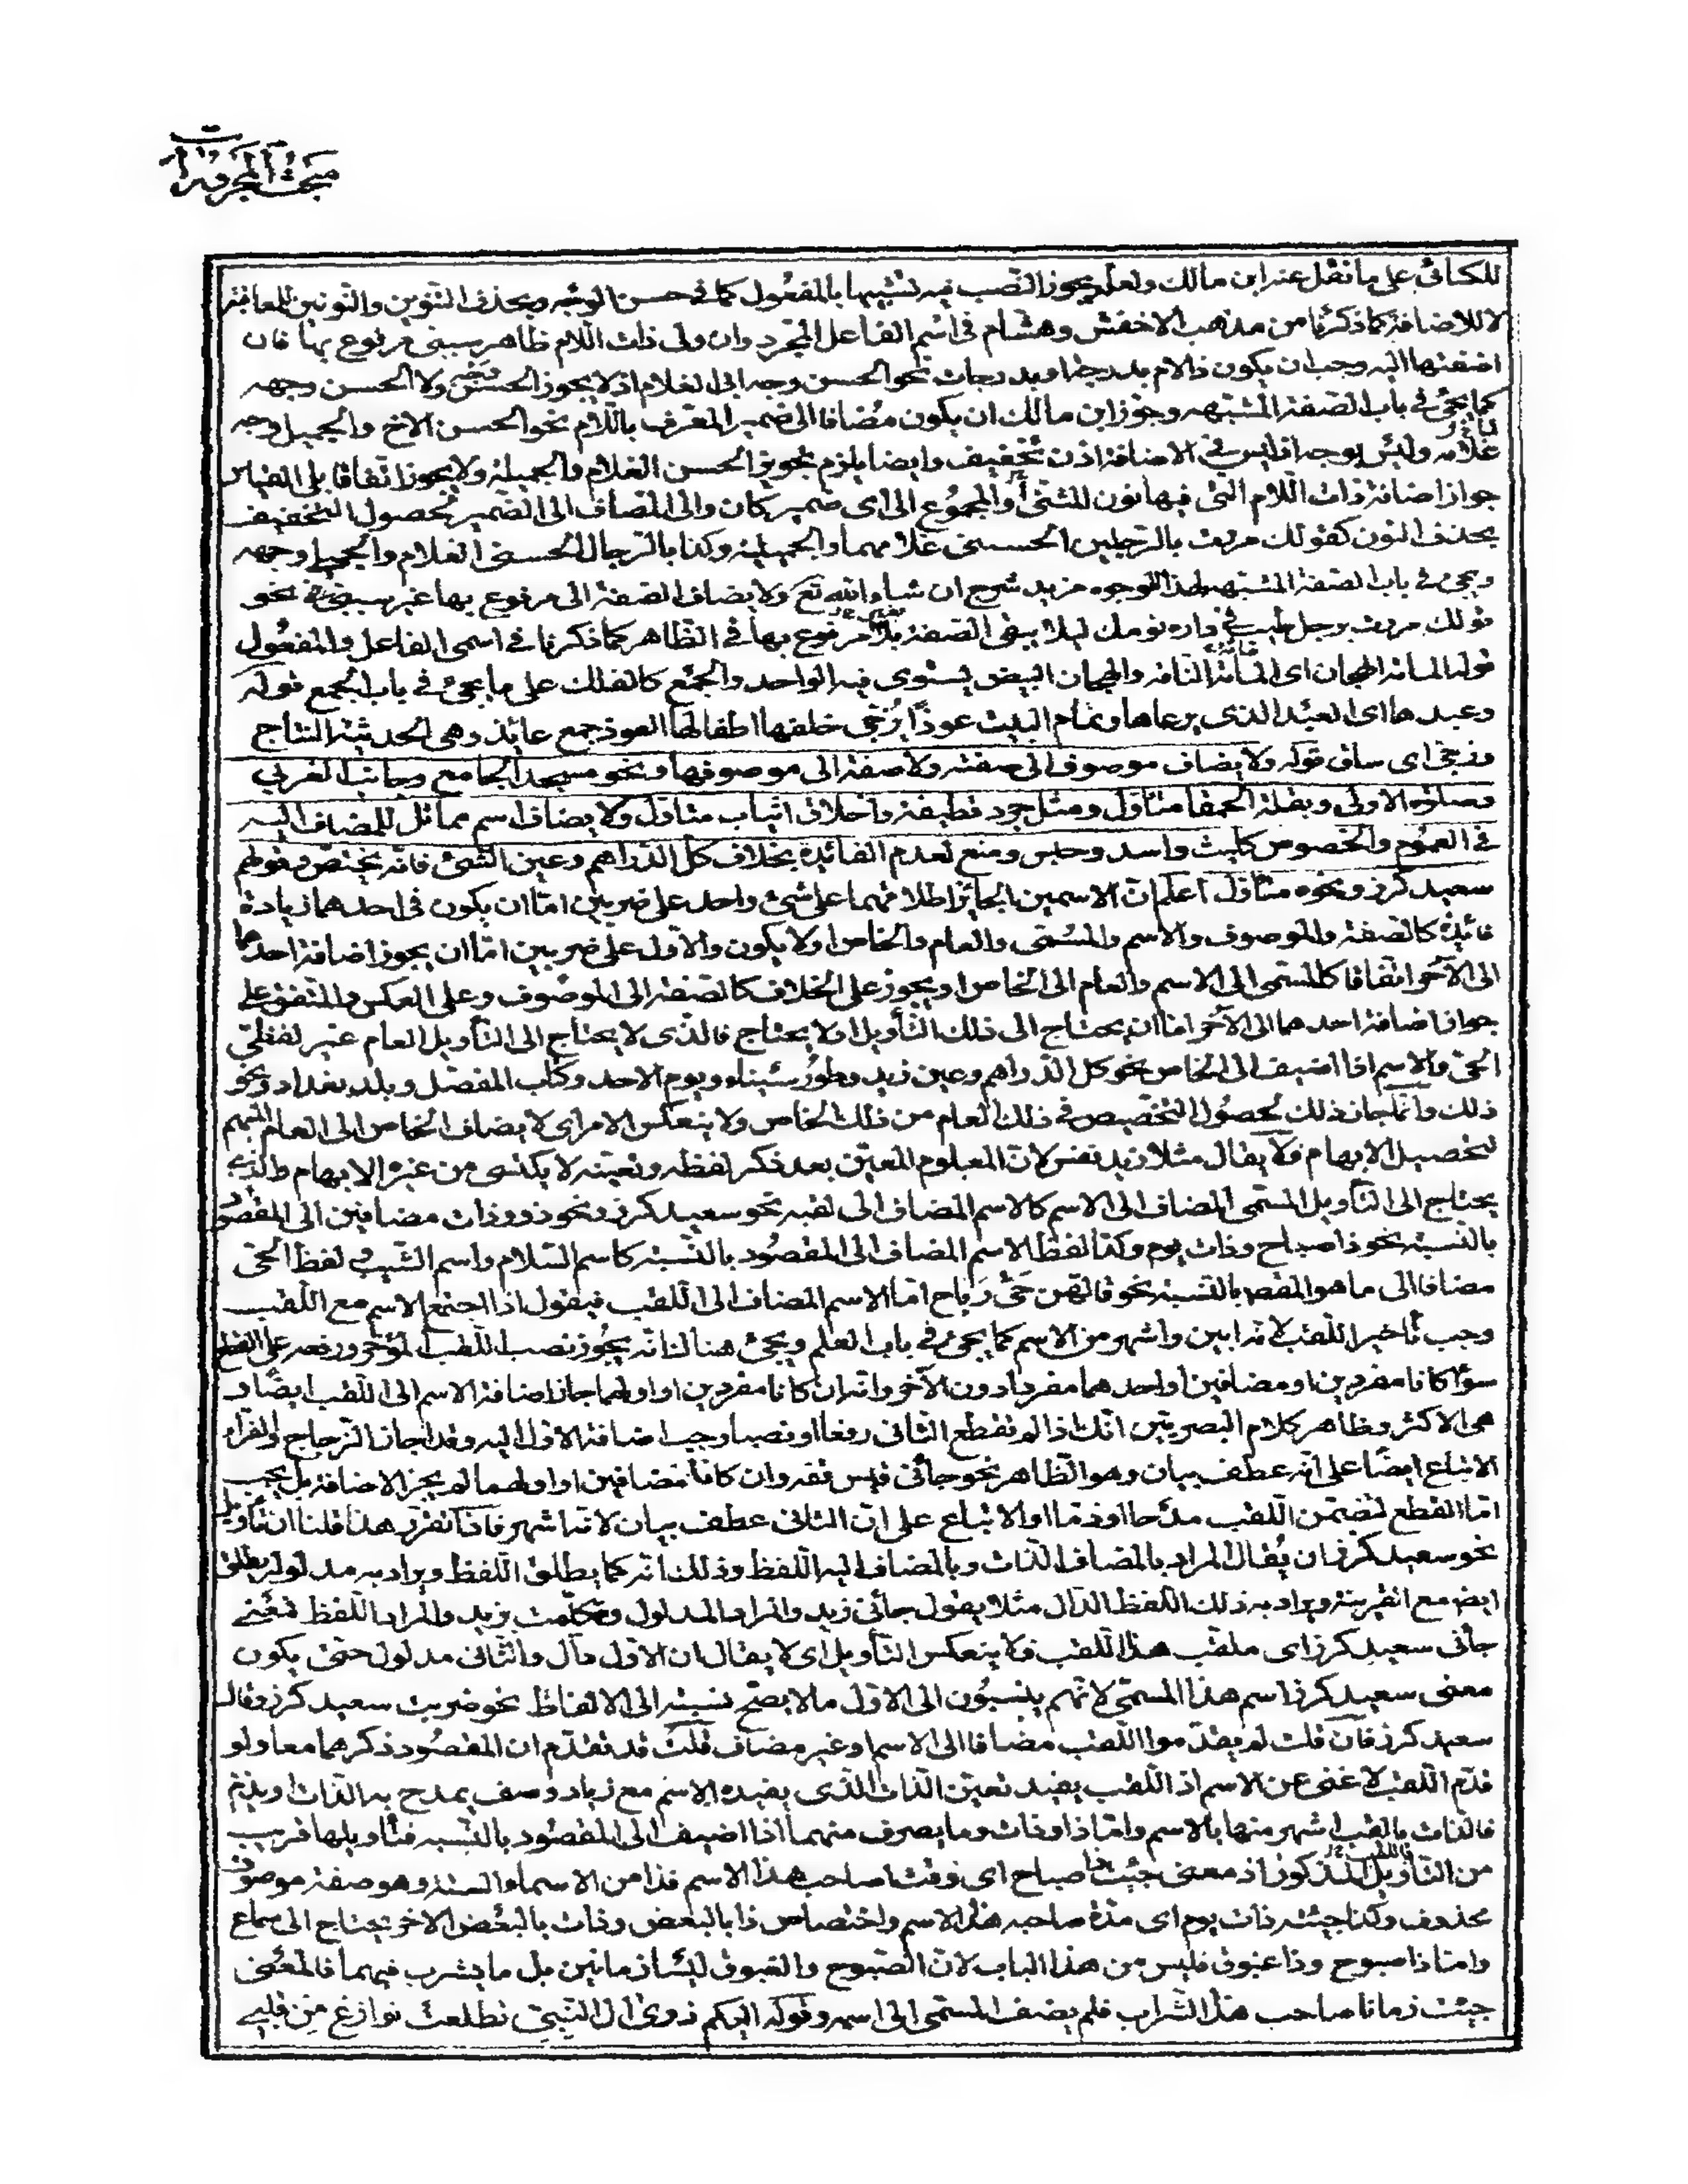 مبحث المجرورات
للكسائى على ما نقل عنه ابن مالك ولعله يجوز النصب فيه تشبيها بالمفعول كما فى حسن الوجه ويحذف التنوين والنونين للمعاقبة
لا للاضافة كما ذكرنا من مذهب الاخفش وهشام فى اسم الفاعل المجرد وان ولى ذات اللام ظاهر سببى مرفوع بها فان
اضفتها اليه وجب ان يكون ذا لام بدرجة او بدرجات نحو الحسن وجه ابى الغلام اذ لا يجوز الحسن وجه ولا الحسن وجهه
كما يجئ فى باب الصفة المشبهه وجوز ابن مالك ان يكون مضافا الى ضمير المعرف باللام نحو الحسن الاخ والجميل وجه
غلامه وليس بوجه اذ ليس فى الاضافة اذن تخفيف وايضا يلزم تجويز الحسن الغلام والجميله ولا يجوز اتفاقا بلى القياس
جواز اضافة ذات اللام التى فيها نون المثنى او المجموع الى اى ضمير كان والى المضاف الى الضمير لحصول التخفيف
بحذف النون كقولك مررت بالرجلين الحسنى غلامهما والجميليه وكذا بالرجال الحسنى الغلام والجميلى وجهه
ويجئ فى باب الصفة المشبهه لهذا الوجوه مزيد شرح ان شاء الله تع ولا يضاف الصفة الى مرفوع بها غير سببى فى نحو
قولك مررت برجل طيب فى داره نومك لئلا يبقى الصفة بلا مرفوع بها فى الظاهر كما ذكرنا فى اسمى الفاعل والمفعول
قوله المائة الهجان اى المائة الناقة والهجان البيض يستوى فيه الواحد والجمع كالفلك على ما يجئ فى باب الجمع قوله
وعبدها اى العبد الذى يرعاها وتمام البيت عوذًا يُزجّى خلفها اطفالها العوذ جمع عائذ وهى الحديثة النتاج
ونزجى اى ساق قوله ولا يضاف موصوف الى صفته ولا صفة الى موصوفها ونحو مسجد الجامع وجانب الغربى
وصلوة الاولى وبقلة الحمقا متأول ومثل جرد قطيفة واخلاق ثياب متاول ولا يضاف اسم مماثل للمضاف اليه
فى العموم والخصوص كليث واسد وحبس ومنع لعدم الفائدة بخلاف كل الدراهم وعين الشئ فانه يختص وقولهم
سعيد كرز ونحوه متاول اعلم ان الاسمين الجائز اطلاقهما على شئ واحد على ضربين اما ان يكون فى احدهما زيادة
فائدة كالصفة والموصوف والاسم والمسمى والعام والخاص او لا يكون والاول على ضربين اما ان يجوز اضافة احدهما
الى الآخر اتفاقا كالمسمى الى الاسم والعام الى الخاص او يجوز على الخلاف كالصفة الى الموصوف وعلى العكس والمتفق على
جواز اضافة احدهما الى الآخر اما ان يحتاج الى ذلك التأويل او لا يحتاج فالذى لا يحتاج الى التأويل العام غير لفظى
الحى والاسم اذا اضيف الى الخاص نحو كل الدراهم وعين زيد وطور سيناء ويوم الاحد وكتاب المفصل وبلد بغداد ونحو
ذلك وانما جاز ذلك لحصول التخصيص فى ذلك العام من ذلك الخاص ولا ينعكس الامر اى لا يضاف الخاص الى العام المبهم
لتحصيل الابهام فلا يقال مثلا زيد نفس لان المعلوم المعين بعد ذكر لفظه وتعينه لا يكتسى من غيره الابهام والذى
يحتاج الى التأويل المسمى المضاف الى الاسم كالاسم المضاف الى لقبه نحو سعيد كرز ونحو ذو وذات مضافين الى المقصود
بالنسبة نحو ذا صباح وذات يوم وكذا لفظ الاسم المضاف الى المقصود بالنسبة كاسم السلام واسم الشيب ولفظ الحى
مضافا الى ما هو المقصود بالنسبة نحو قالهن حىّ رباح اما الاسم المضاف الى اللقب فيقول اذا اجتمع الاسم مع اللقب
وجب تأخير اللقب لانه ابين واشهر من الاسم كما يجئ فى باب العلم ويجئ هنالك انه يجوز نصب اللقب المؤخر ورفعه على القطع
سواء كانا مفردين او مضافين او احدهما مفردا دون الآخر وانه ان كانا مفردين او اولهما جاز اضافة الاسم الى اللقب ايضا و
هى الاكثر وظاهر كلام البصريين انك اذا لم تقطع الثانى رفعا او نصبا وجب اضافة الاول اليه وقد اجاز الزجاج والفراء
الاتباع ايضا على انه عطف بيان وهو الظاهر نحو جائنى قيس قفه وان كانا مضافين او اولهما لم يجز الاضافة بل يجب
اما القطع لتضمن اللقب مدحا او ذما او الاتباع على ان الثانى عطف بيان لانه اشهر فاذا تقرر هذا قلنا ان تأويل
نحو سعيد كرز ان يُقال المراد بالمضاف الذات وبالمضاف اليه اللفظ وذلك انه كما يطلق اللفظ ويراد به مدلوله يطلق
ايض مع القرينة ويراد به ذلك اللفظ الدال مثلا يقول جائنى زيد والمراد المدلول وتكلمت بزيد والمراد اللفظ فمعنى
جائنى سعيد كرز اى ملقب هذا اللقب ولا ينعكس التأويل اى لا يقال ان الاول دال والثانى مدلول حتى يكون
معنى سعيد كرز اسم هذا المسمى لانهم ينسبون الى الاول ما لا يصح نسبته الى الالفاظ نحو ضربت سعيد كرز وقال
سعيد كرز فان قلت لم يقدموا اللقب مضافا الى الاسم او غير مضاف قلت قد تقدم ان المقصود ذكرهما معا ولو
قدم اللقب لاغنى عن الاسم اذ اللقب يفيد تعين الذات الذى يفيده الاسم مع زياد وصف يمدح به الذات او يذم
فالذات باللقب اشهر منها بالاسم واما ذا وذات وما يصرف منهما اذا اضيف الى المقصود بالنسبه فتأويلها قريب
من التأويل المذكور اذ معنى جئت ذا صباح اى وقتا صاحب هذا الاسم فذا من الاسماء الستة وهو صفة موصوف
محذوف وكذا جيئته ذات يوم اى مدة صاحبه هذا الاسم واختصاص ذا بالبعض وذات بالبعض الاخر يحتاج الى سماع
واما ذا صبوح وذا غبوق فليس من هذا الباب لان الصبوح والغبوق ليسا زمانين بل ما يشرب فيهما فالمعنى
جيئت زمانا صاحب هذا الشراب فلم يضف المسمى الى اسمه وقوله اليكم ذوى ال النبى تطلعت نوازع من قلبى